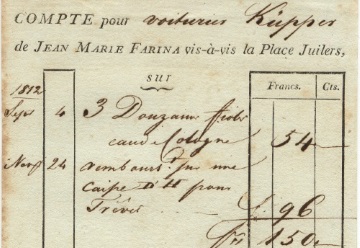 COMPTE pour voiturier Küpper
de JEAN MARIE FARINA vis-à-vis la Place Juliers,
sur
1812 Francs. Cts.
Sept 4 3 Douzaine
eau Cologne 54
Novr 24 rembours. sur une
caisse dto pour
Trèves 96
150